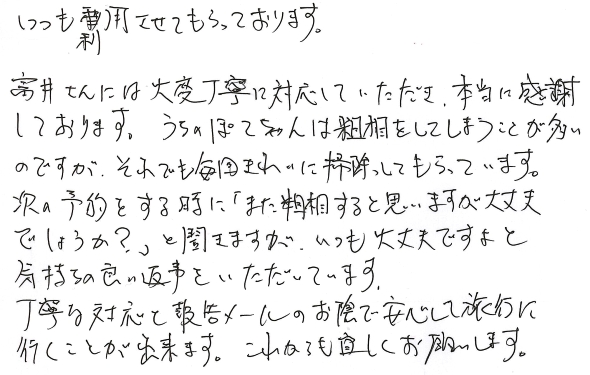 いつも利用させてもらっております。
高井さんには大変丁寧に対応していただき、本当に感謝
しております。うちのぽてちゃんは粗相をしてしまうことが多い
のですが、それでも毎回きれいに掃除してもらっています。
次の予約をする時に「また粗相すると思いますが大丈夫
でしょうか?」と聞きますが、いつも大丈夫ですよと
気持ちの良い返事をいただいています。
丁寧な対応と報告メールのお陰で安心して旅行に
行くことが出来ます。これからも宜しくお願いします。